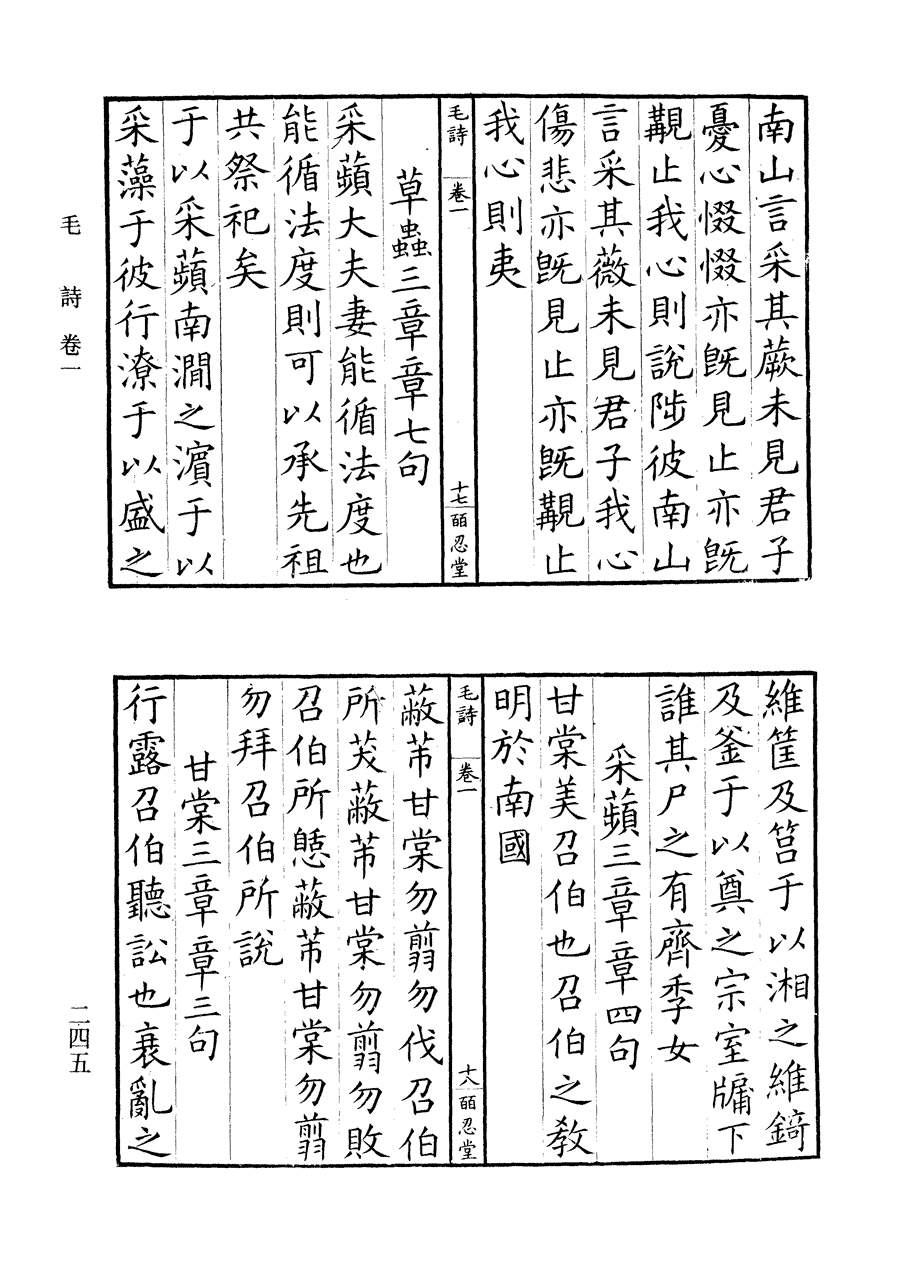 南山言采其蕨未見君子
憂心惙惙亦旣見止亦旣
覯止我心則說陟彼南山
言采其薇未見君子我心
傷悲亦旣見止亦旣覯止
我心則夷
毛詩 卷一 十七 皕忍堂
草蟲三章章七句
采蘋大夫妻能循法度也
能循法度則可以承先祖
共祭祀矣
于以采蘋南澗之濵于以
采藻于彼行潦于以盛之
維筐及筥于以湘之維錡
及釜于以奠之宗室牖下
誰其尸之有齊季女
采蘋三章章四句
甘棠美召伯也召伯之教
明於南國
毛詩 卷一 十八 皕忍堂
蔽芾甘棠勿翦勿伐召伯
所茇蔽芾甘棠勿翦勿敗
召伯所憩蔽芾甘棠勿翦
勿拜召伯所說
甘棠三章章三句
行露召伯聽訟也衰亂之
毛詩 卷一
二四五